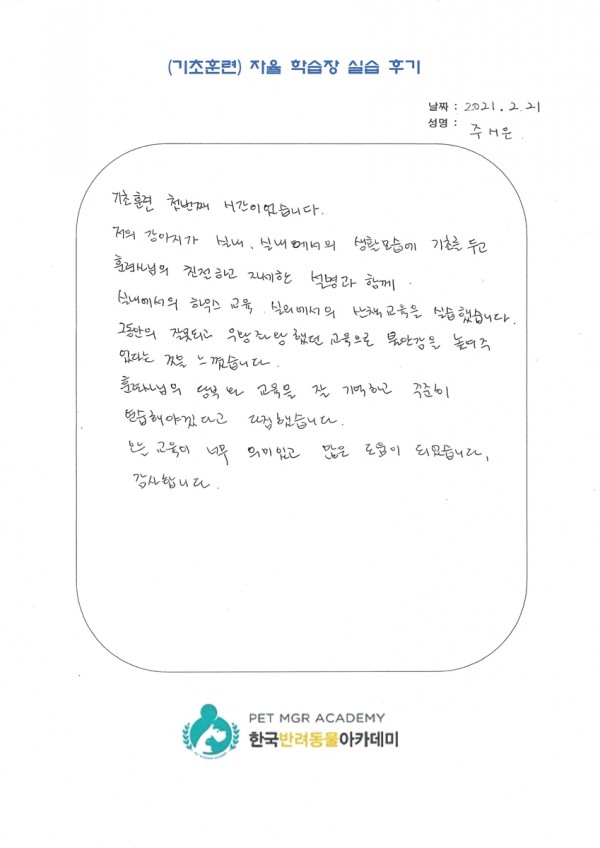 (기초훈련) 자율 학습장 실습 후기
날짜 : 2021. 2. 21
성명 : 주시은
기초훈련 첫번째 시간이었습니다.
저의 강아지가 실내, 실내에서의 생활모습에 기초를 두고
훈련사님의 친절하고 자세한 설명과 함께
실내에서의 하우스 교육, 실외에서의 산책교육을 실습했습니다.
그동안의 잘못되고 우왕좌왕했던 교육으로 불안감을 높여주
었다는 것을 느꼈습니다.
훈련사님의 당부와 교육을 잘 기억하고 꾸준히
연습해야겠다고 다짐했습니다.
오늘 교육이 너무 의미있고 많은 도움이 되었습니다.
감사합니다.
PET MGR ACADEMY
한국반려동물아카데미